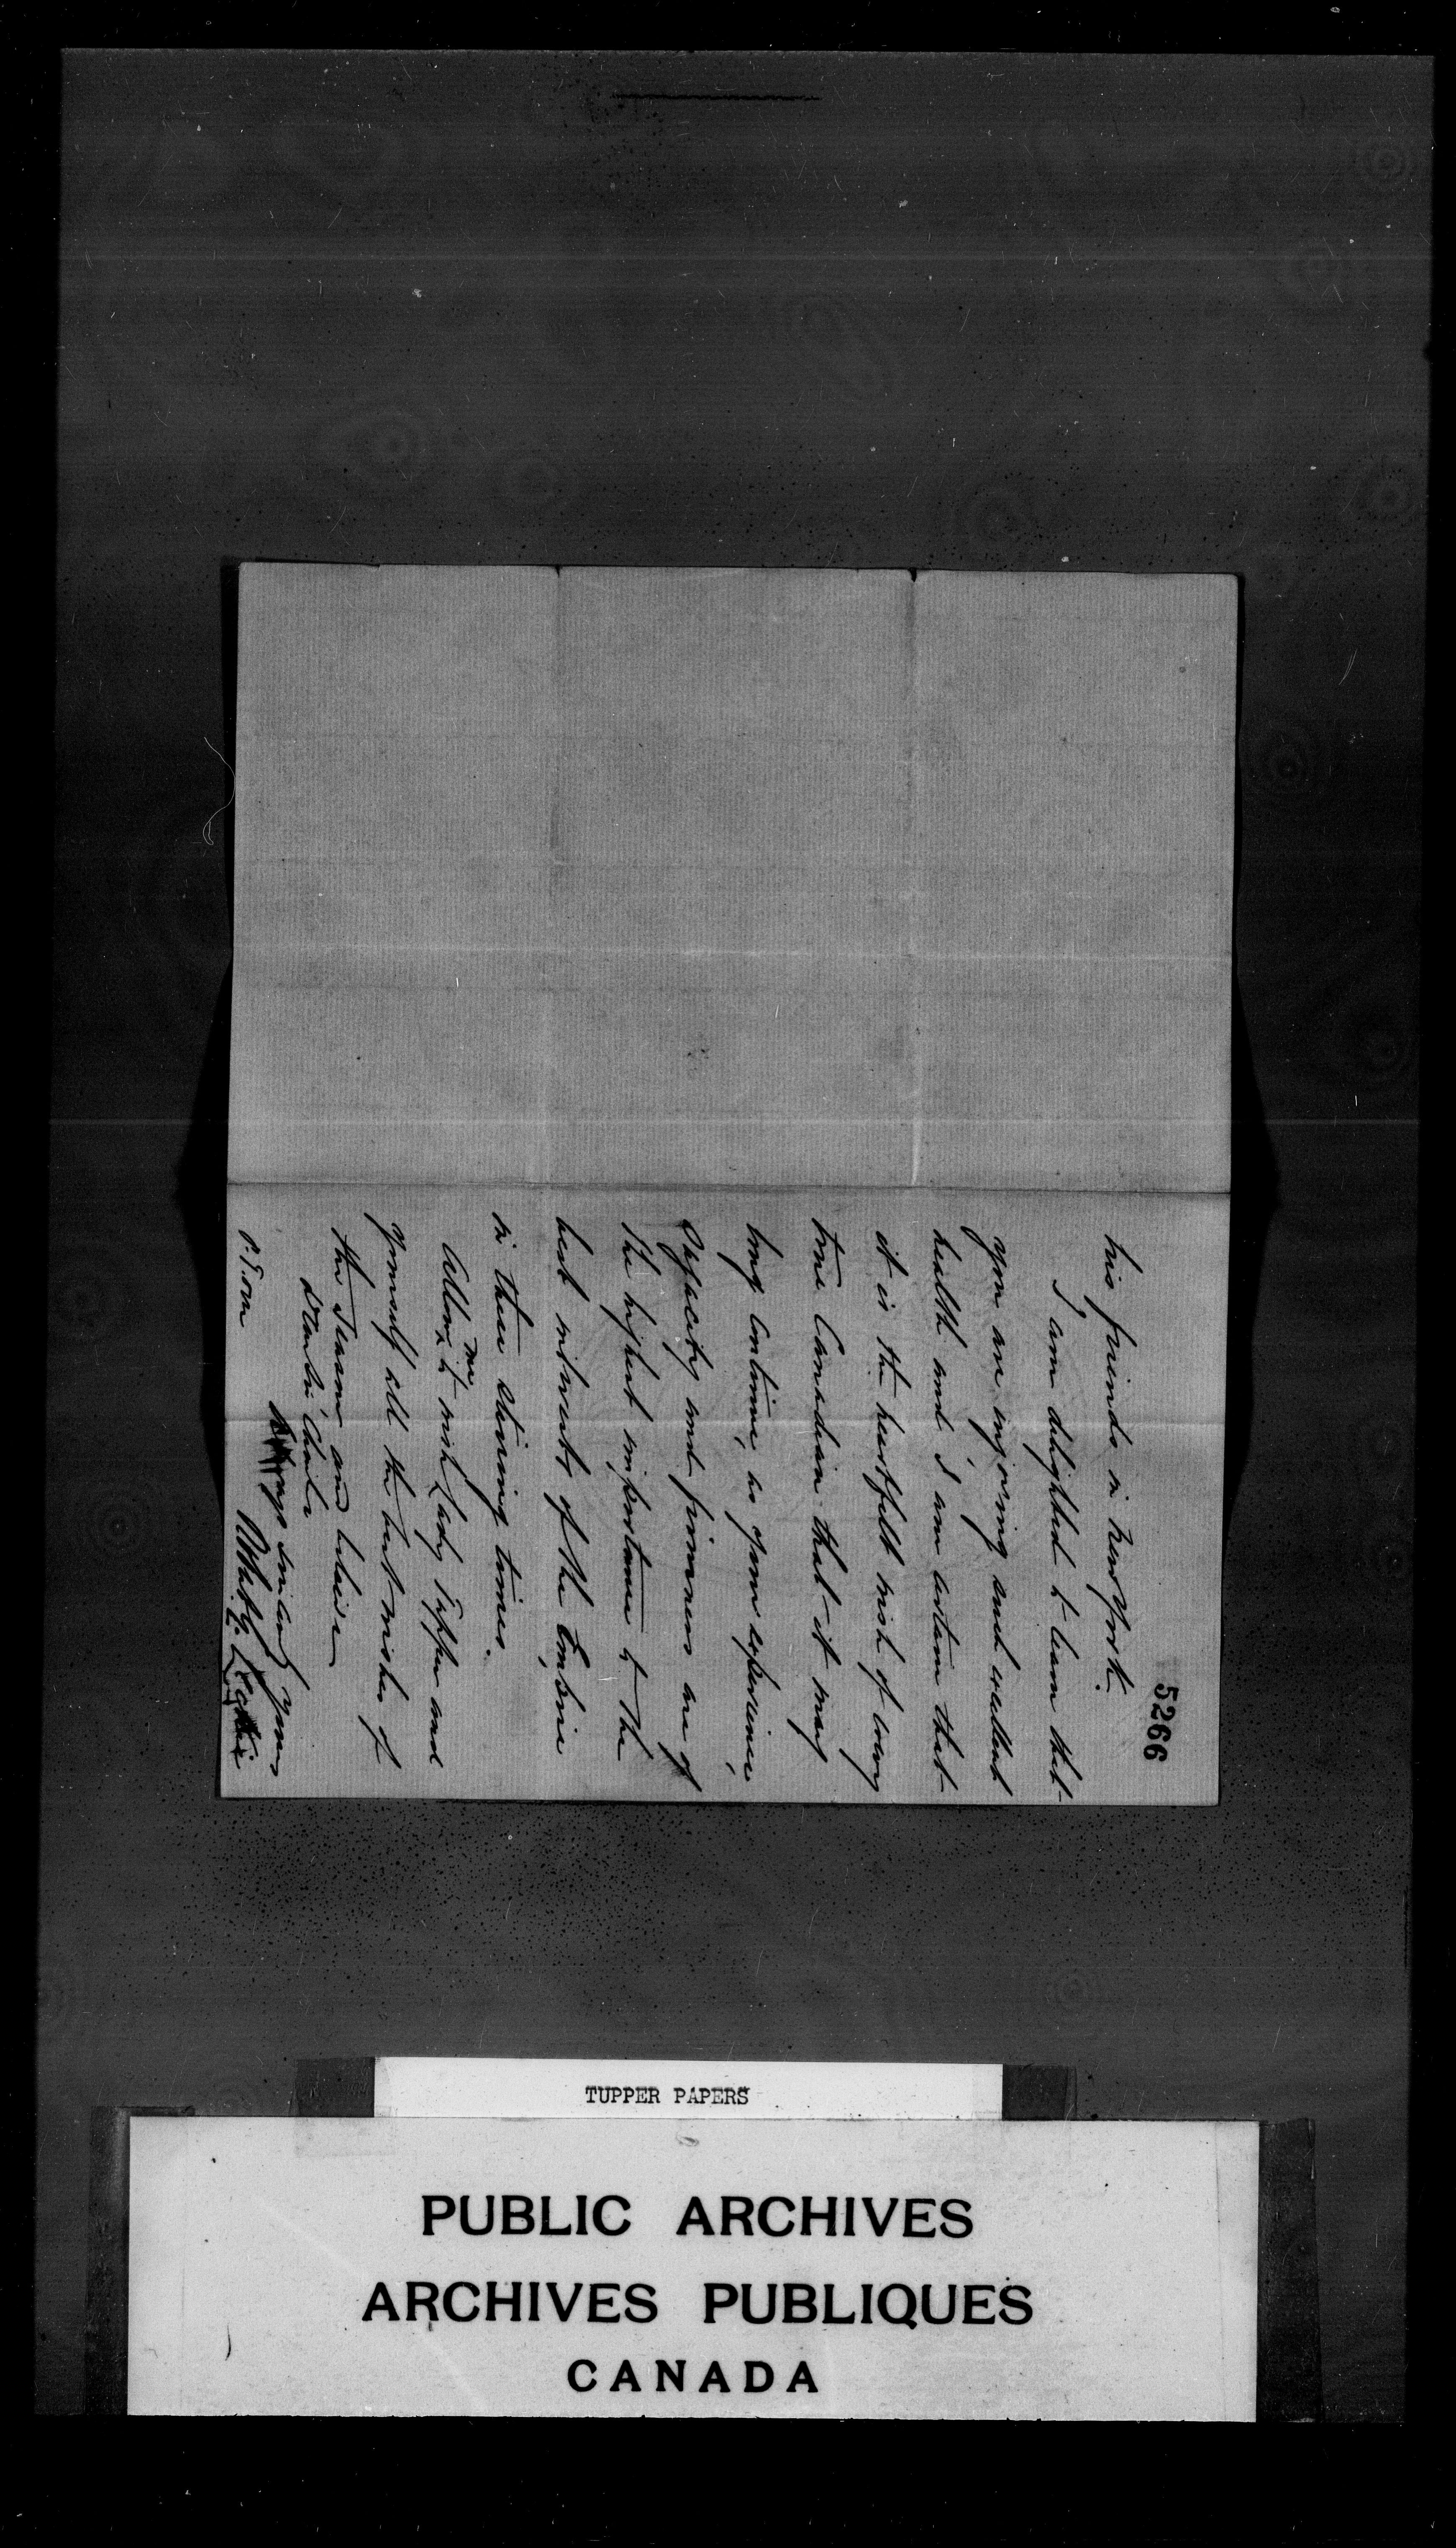 5266
his friends in New York.
I am delighted to learn that
you are enjoying such excellent
health and, I am certain that
it is the heartfelt wish of every
true Canadian that it may
long continue, as your experience,
capacity and firmness are of
the highest importance to the
best interests of the Empire
in these stirring times.
Allow me to wish Lady Tupper and
yourself all the best wishes of
the Season, and believe
Dear Sir Charles
sincerely yours
P.T.O.
TUPPER PAPERS
PUBLIC ARCHIVES
ARCHIVES PUBLIQUES
CANADA